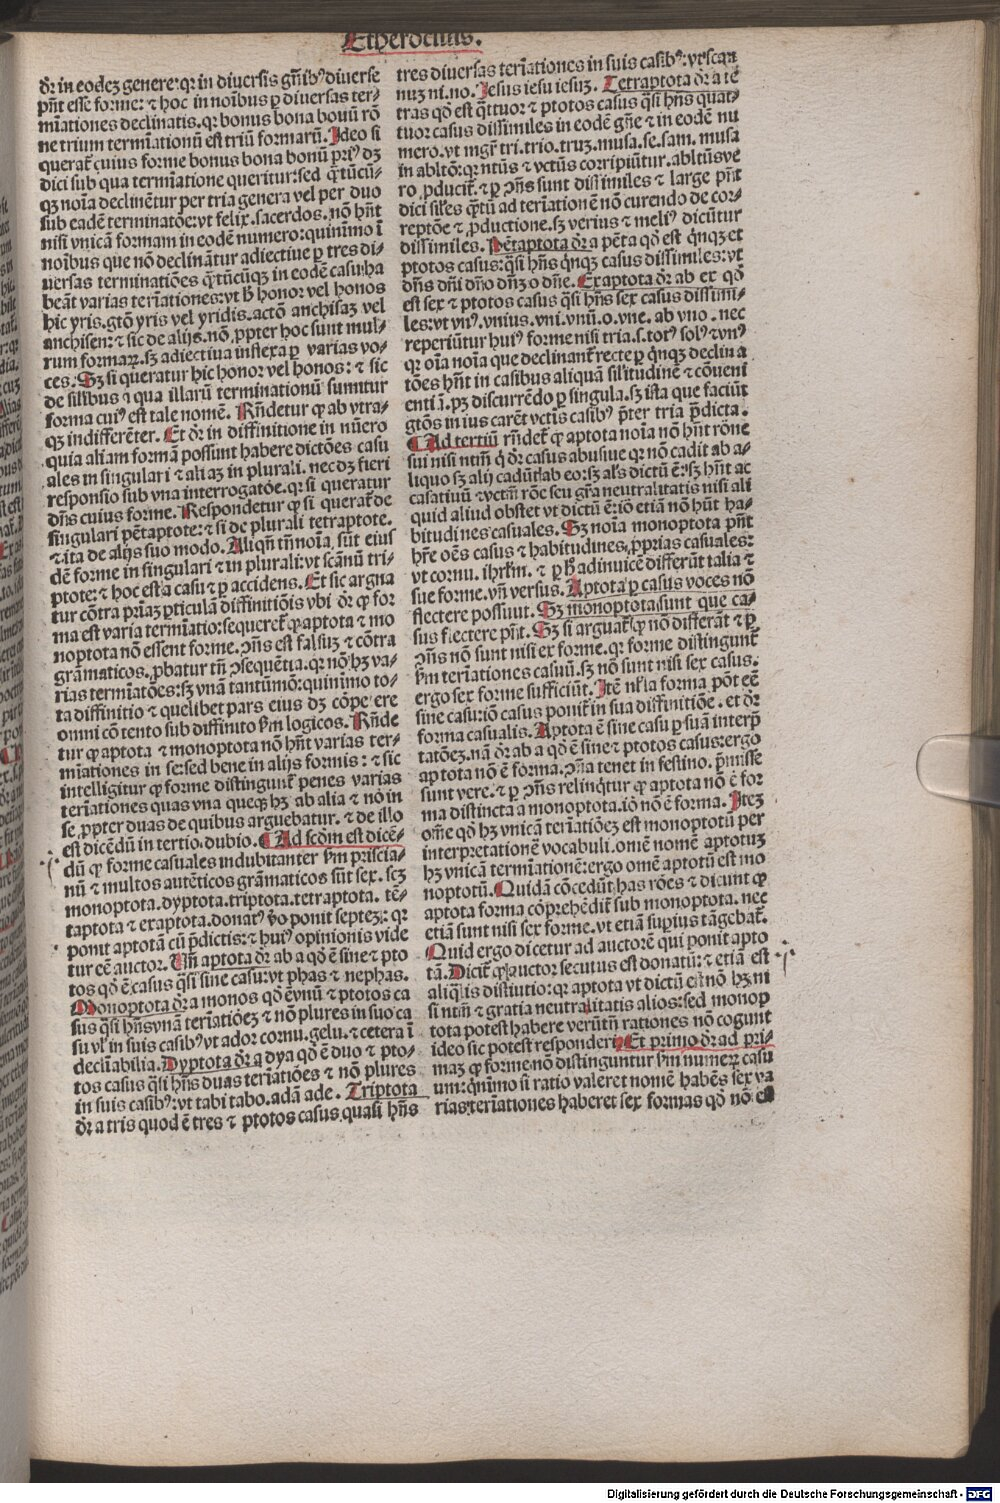 Etheroclitus.
dr̄ in eodeꝫ genere: qꝛ in diuersis gn̄ibꝰ diuerse
pn̄t esse forme: ⁊ hoc in noībus ꝑ diuersas ter-
mīationes declinatis. qꝛ bonus bona bonū rō
ne trium termīationū est triū formarū. Ideo si
querat̄ cuius forme bonus bona bonū pri⁹ dꝫ
dici sub qua termīatione queritur: sed q̄tūcū-
qꝫ noīa declinētur per tria genera vel per duo
sub eadē terminatōe: vt felix. sacerdos. nō hn̄t
nisi vnicā formam in eodē numero: quinīmo ī
noībus que nō declinātur adiectiue ꝑ tres di-
uersas terminatiōes q̄tūcūqꝫ in eodē casu: ha
beāt varias ter̄iationes: vt hͦ honor vel honos
hic yris. gtō yris vel yridis. actō anchisaꝫ vel
anchisen: ⁊ sic de alijs. nō ꝓpter hoc sunt mul-
rum formaꝝ. sꝫ adiectiua inflexa ꝑ varias vo-
ces. Sꝫ si queratur hic honor vel honos: ⁊ sic
de silībus ī qua illarū terminationū sumitur
forma cui⁹ est tale nomē. Rn̄detur ꝙ ab vtra-
qꝫ indifferēter. Et dr̄ in diffinitione in nūero
quia aliam formā possunt habere dictōes casu
ales in singulari ⁊ aliaꝫ in plurali. nec dꝫ fieri
responsio sub vna interrogatōe. qꝛ si queratur
dn̄s cuius forme. Respondetur ꝙ si querat̄ de
singulari pētaptote: ⁊ si de plurali tetraptote.
⁊ ita de alijs suo modo. Aliqn̄ tn̄ noīa sūt eius
dē forme in singulari ⁊ in plurali: vt scānū tri-
ptote: ⁊ hoc est a casu ⁊ ꝑ accidens. Et sic argua
tur cōtra prīaꝫ ꝑticulā diffinitiōis vbi dr̄ ꝙ for
ma est varia termīatio: sequeret̄ ꝙ aptota ⁊ mo
noptota nō essent forme. ꝯn̄s est falsuꝫ ⁊ cōtra
grāmaticos. ꝓbatur tn̄ ꝯsequētia. qꝛ nō hꝫ va-
rias termīatōes: sꝫ vnā tantūmō: quinīmo to-
ta diffinitio ⁊ quelibet pars eius dꝫ cōpetere
omni cōtento sub diffinito ẜm logicos. Rn̄de
tur ꝙ aptota ⁊ monoptota nō hn̄t varias ter-
mīationes in se: sed bene in alijs formis: ⁊ sic
intelligitur ꝙ forme distinguūt̄ penes varias
ter̄iationes quas vna queqꝫ hꝫ ab alia ⁊ nō in
se ꝓpter duas de quibus arguebatur. ⁊ de illo
est dicēdū in tertio. dubio. ¶ Ad scd̄m est dicē-
dū ꝙ forme casuales indubitanter ẜm priscia-
nū ⁊ multos autēticos grāmaticos sūt sex. scꝫ
monoptota. dyptota. triptota. tetraptota. pē-
taptota ⁊ exaptota. donat⁹ ꝟo ponit septeꝫ: qꝛ
ponit aptotā cū p̄dictis: ⁊ hui⁹ opinionis vide
tur eē auctor. Un̄ aptota dr̄ ab a qd̄ ē sine ⁊ pto
tos qd̄ ē casus q̄si sine casu: vt phas ⁊ nephas.
Monoptota dr̄ a monos qd̄ ē vnū ⁊ ptotos ca
sus q̄si hn̄s vnā ter̄iatiōeꝫ ⁊ nō plures in suo ca
su vl̄ in suis casibꝰ vt ador cornu. gelu. ⁊ cetera ī
declīabilia. Dyptota dr̄ a dya qd̄ ē duo ⁊ pto-
tos casus q̄si hn̄s duas ter̄iatiōes ⁊ nō plures
in suis casibꝰ: vt tabi tabo. adā ade. Triptota
dr̄ a tris quod ē tres ⁊ ptotos casus quasi hn̄s
tres diuersas ter̄iationes in suis casibꝰ: vt scan
nuꝫ ni. no. Jesus iesu iesuꝫ. Tetraptota dr̄ a te
tras qd̄ est q̄ttuor ⁊ ptotos casus q̄si hn̄s quat-
tuor casus dissimiles in eodē gn̄e ⁊ in eodē nu
mero. vt mgr̄ tri. tro. truꝫ. musa. se. sam. musa
in abltō: qꝛ ntūs ⁊ vctūs corripiūtur. abltūs ve
ro ꝓducit̄. ⁊ ꝑ ꝯn̄s sunt dissimiles ⁊ large pn̄t
dici siles q̄tū ad ter̄iationē nō curendo de cor-
reptōe ⁊ ꝓductione. sꝫ verius ⁊ meli⁹ dicūtur
dissimiles. Pētaptota dr̄ a pēta qd̄ est q̄nqꝫ et
ptotos casus: q̄si hn̄s q̄nqꝫ casus dissimiles: vt
dn̄s dn̄i dn̄o dn̄ꝫ o dn̄e. Exaptota dr̄ ab ex qd̄
est sex ⁊ ptotos casus q̄si hn̄s sex casus dissimi-
les: vt vn⁹. vnius. vni. vnū. o. vne. ab vno. nec
reperiūtur hui⁹ forme nisi tria. s. tot⁹ sol⁹ ⁊ vn⁹
qꝛ oīa noīa que declinant̄ recte ꝑ q̄nqꝫ declina
tōes hn̄t in casibus aliquā silitudinē ⁊ cōueni
entiā. pꝫ discurrēdo ꝑ singula. sꝫ ista que faciūt
gtōs in ius carēt vctīs casibꝰ p̄ter tria p̄dicta.
¶ Ad tertiū rn̄det̄ ꝙ aptota noīa nō hn̄t rōne
sui nisi ntm̄ q̄ dr̄ casus abusiue qꝛ nō cadit ab a-
liquo sꝫ alij cadūt ab eo: sꝫ als̄ dictū ē: sꝫ hn̄t ac
casatiuū ⁊ vctm̄ rōe seu gr̄a neutralitatis nisi ali
quid aliud obstet vt dictū ē: iō etiā nō hn̄t ha-
bitudines casuales. Sꝫ noīa monoptota pn̄t
hr̄e oēs casus ⁊ habitudines ꝓprias casuales:
vt cornu. ihrlm̄. ⁊ ꝑ hͦ adinuicē differūt talia ⁊
sue forme. vn̄ versus. Aptota ꝑ casus voces nō
flectere possunt. Sꝫ monoptota sunt que ca-
sus flectere pn̄t. Sꝫ si arguat̄ ꝙ nō differāt ⁊ ꝑ
ꝯn̄s nō sunt nisi ex forme. qꝛ forme distingunt̄
ẜm ter̄iationes casuū. sꝫ nō sunt nisi sex casus.
ergo sex forme sufficiūt. Itē nl̄la forma pōt eē
sine casu: iō casus ponit̄ in sua diffinitiōe. et dr̄
forma casualis. Aptota ē sine casu ꝑ suā interp̄
tatōeꝫ. nā dr̄ ab a qd̄ ē sine ⁊ ptotos casus: ergo
aptota nō ē forma. ꝯn̄a tenet in festino. p̄misse
sunt vere. ⁊ ꝑ ꝯn̄s relinq̄tur ꝙ aptota nō ē for
ma distincta a monoptota. iō nō ē forma. Iteꝫ
om̄e qd̄ hꝫ vnicā ter̄iatiōeꝫ est monoptotū per
interpretationē vocabuli. omē nomē aptotuꝫ
hꝫ vnicā termīationē: ergo omē aptotū est mo
noptotū. Quidā cōcedūt has rōes ⁊ dicunt ꝙ
aptota forma cōprehēdit̄ sub monoptota. nec
etiā sunt nisi sex forme. vt etiā suꝑius tāgebat̄.
Quid ergo dicetur ad auctorē qui ponit apto
tā. Dicit̄ ꝙ auctor secutus est donatū: ⁊ etiā est
aliq̄lis distīctio: qꝛ aptota vt dictū est nō hꝫ ni
si ntm̄ ⁊ gratia neutralitatis alios: sed monop
tota potest habere verūtn̄ rationes nō cogunt
ideo sic potest responderi. Et primo dr̄ ad pri-
maꝫ ꝙ forme nō distinguntur ẜm numeꝝ casu
um: q̄nimo si ratio valeret nomē habēs sex va
rias ter̄iationes haberet sex formas qd̄ nō est
Digitalisierung gefördert durch die Deutsche Forschungsgemeinschaft - DFG